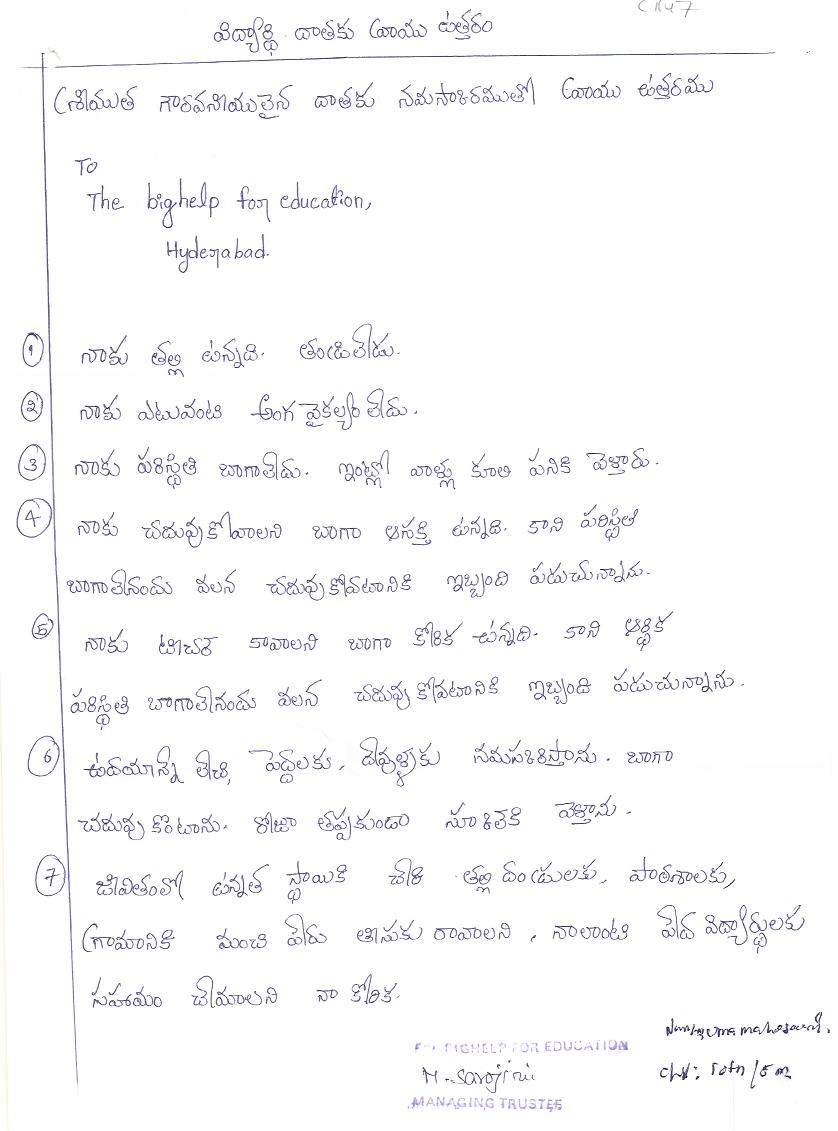 CR47
విద్యార్థి దాతకు వ్రాయు ఉత్తరం
శ్రీయుత గౌరవనీయులైన దాతకు నమస్కారములతో వ్రాయు ఉత్తరము
To
The bighelp for education,
Hyderabad.
1 నాకు తల్లి ఉన్నది. తండ్రిలేడు.
2 నాకు ఎటువంటి అంగ వైకల్యం లేదు.
3 నాకు పరిస్థితి బాగాలేదు. ఇంట్లో వాళ్లు కూలి పనికి వెళ్తారు.
4 నాకు చదువుకోవాలని బాగా ఆసక్తి ఉన్నది. కాని పరిస్థితి
బాగాలేనందు వలన చదువుకోవటానికి ఇబ్బంది పడుచున్నాను.
5 నాకు టీచర్ కావాలని బాగా కోరిక ఉన్నది. కాని ఆర్థిక
పరిస్థితి బాగాలేనందు వలన చదువుకోవటానికి ఇబ్బండి పడుచున్నాను.
6 ఉదయాన్నే లేచి, పెద్దలకు, దేవుళ్ళకు నమస్కరిస్తాను. బాగా
చదువుకొంటాను. రోజూ తప్పకుండా స్కూల్‌కి వెళ్తాను.
7 జీవితంలో ఉన్నత స్థాయికి చేరి తల్లిదండ్రులకు, పాఠశాలకు,
గ్రామానికి మంచి పేరు తీసుకు రావాలని, నాలాంటి పేద విద్యార్థులకు
సహాయం చేయాలని నా కోరిక.
For BIGHELP FOR EDUCATION
M. Sarojini
MANAGING TRUSTEE